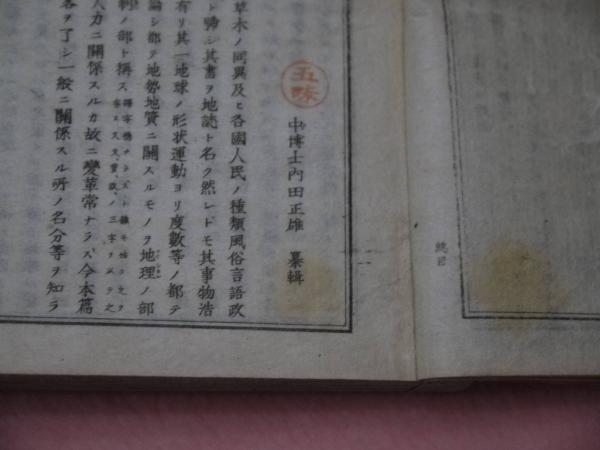 中博士內田正雄 纂輯
草木ノ同異及ヒ各國人民ノ種類風俗言語政
ト號シ其書ヲ地誌ト名ク然レドモ其事物浩
有リ其一地球ノ形狀運動ヨリ度數等ノ都テ
論シ都テ地勢地質ニ關スルモノヲ地理ノ部
ノ部ト稱ス
人力ニ關係スルカ故ニ變革常ナラス今本篇
ヲ了シ一般ニ關係スル所ノ名分等ヲ知ラ
總目